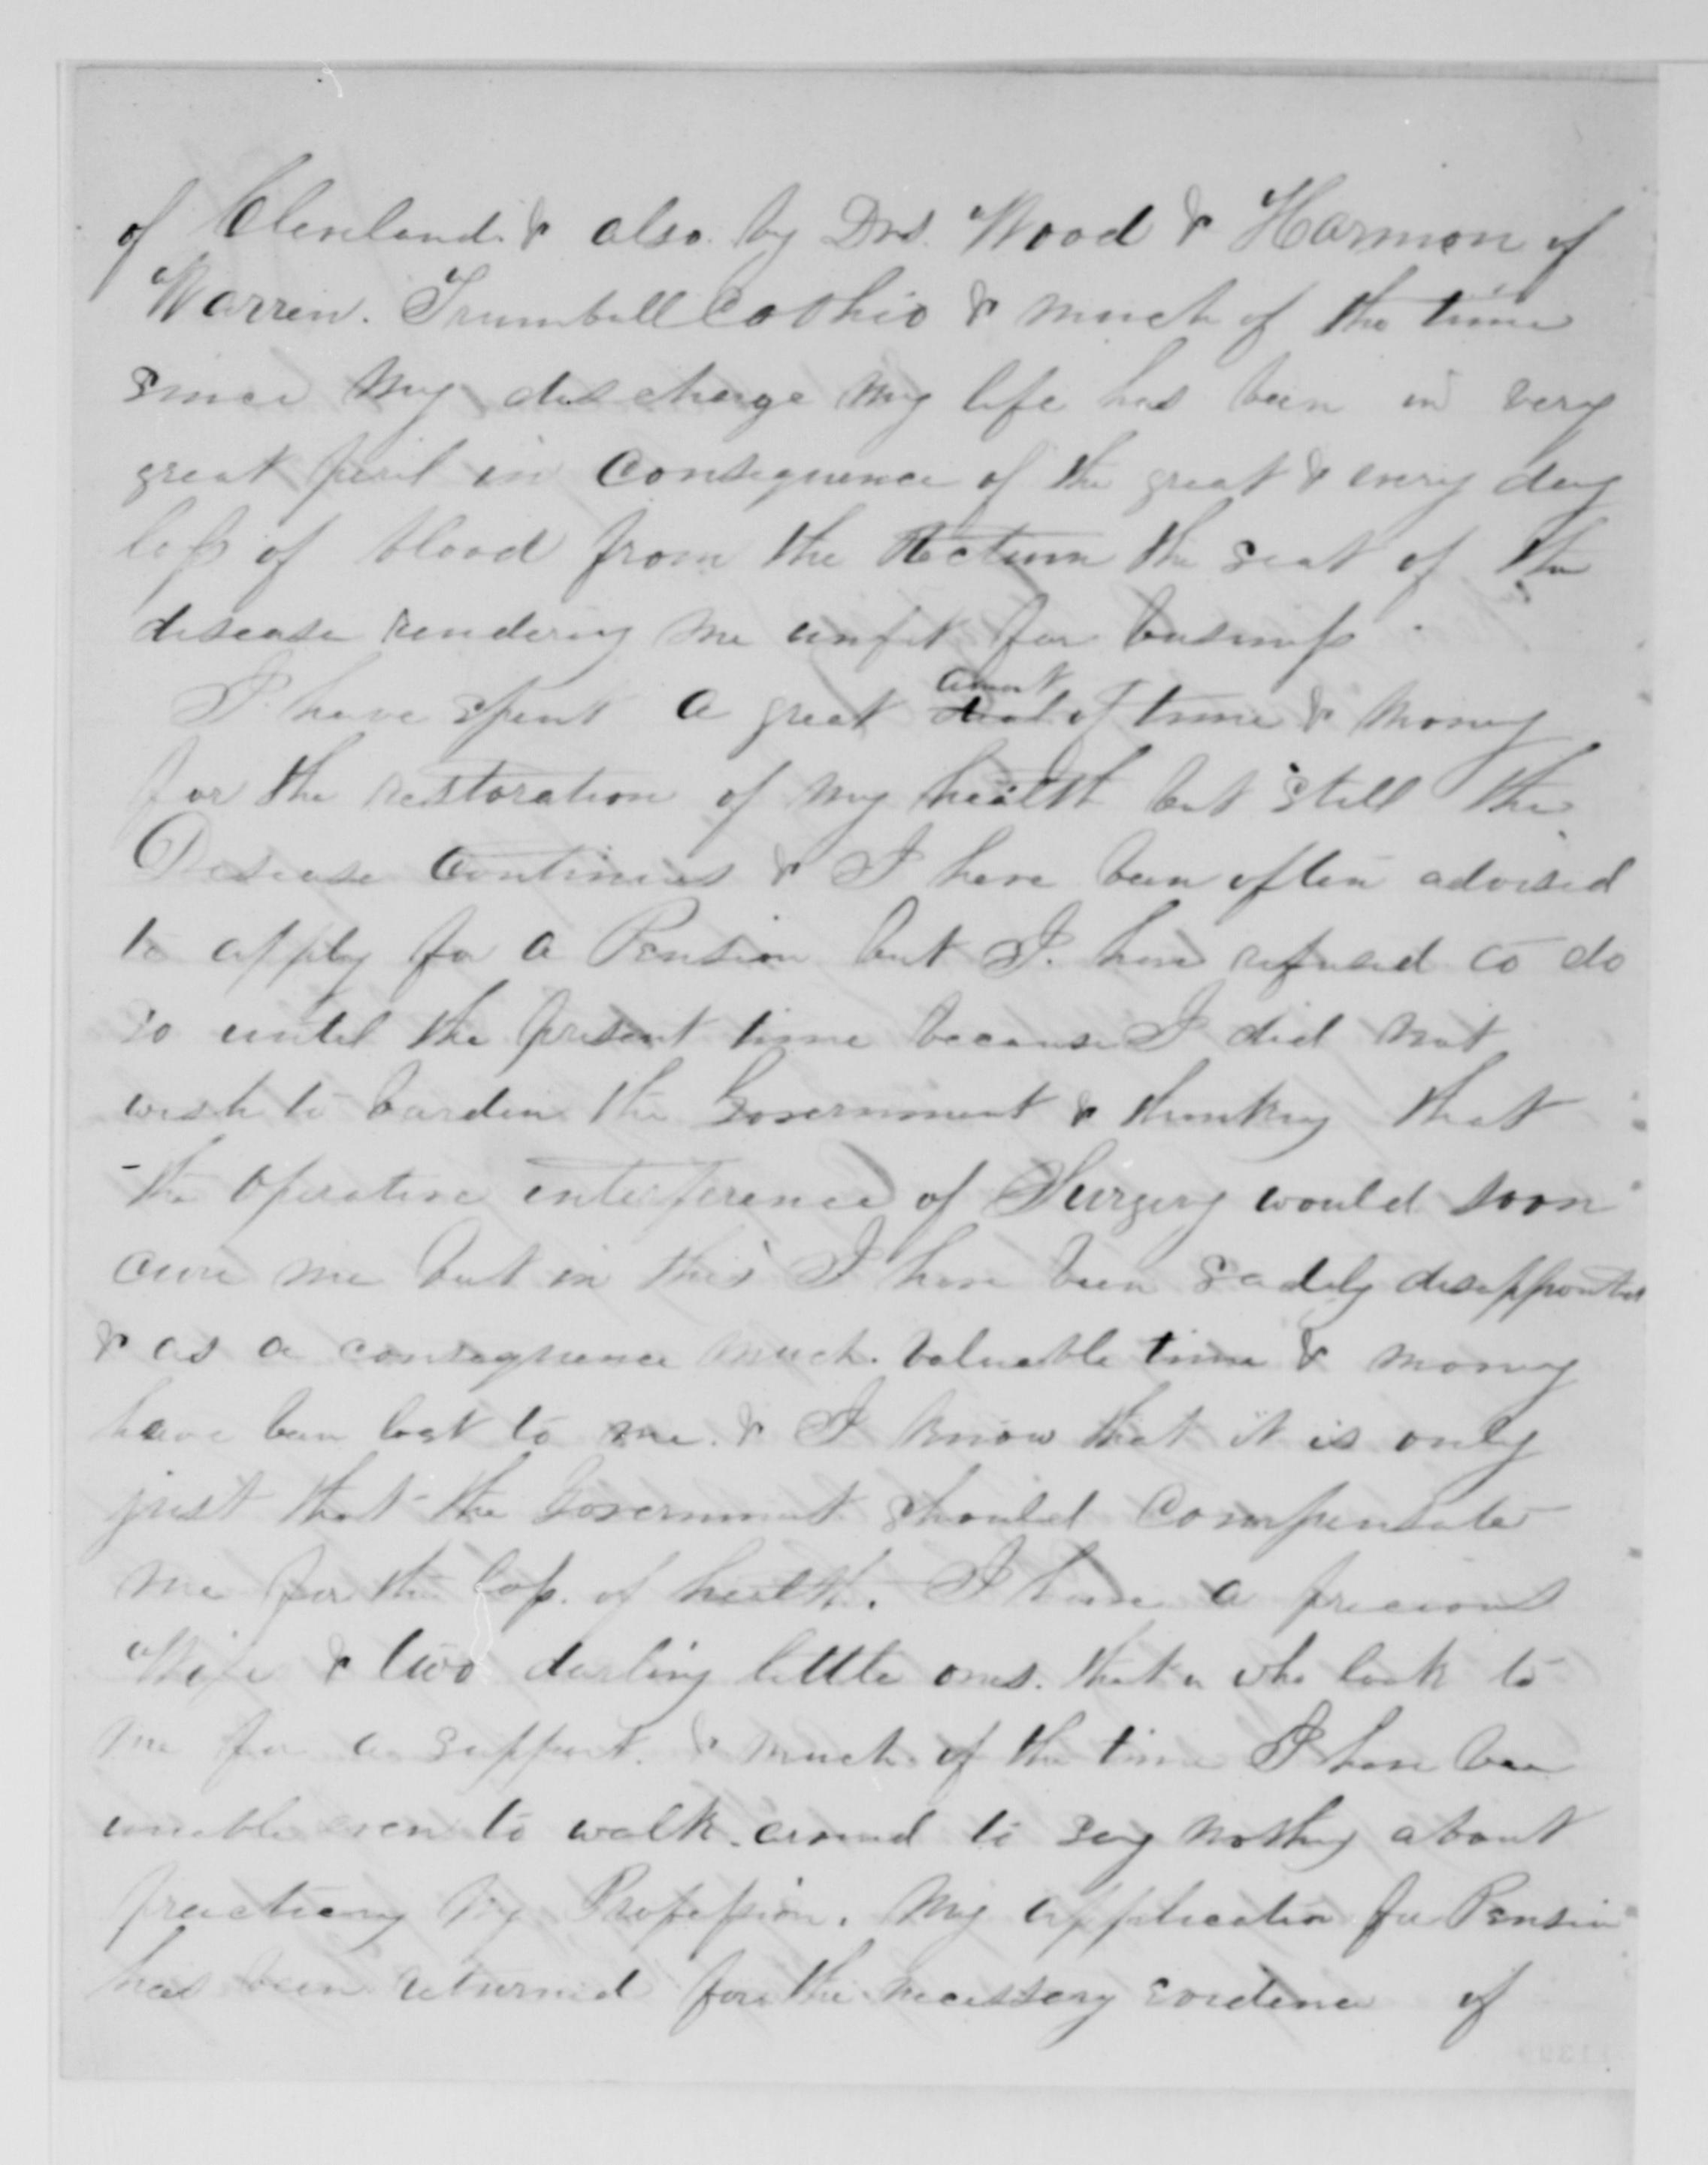 of Cleveland & also by Drs. Wood & Harmon of
Warren. Trumbull Co Ohio & much of the time
since my discharge my life has been in very
great peril in Consequence of the great & every day
loss of blood from the Rectum the seat of the
disease rendering me unfit for business
amount
I have spent a great deal of time & money
for the restoration of my health but still the
Disease Continues & I have been often advised
to apply for a Pension but I have refused to do
so until the present time because I did not
wish to burden the Government & thinking that
the operative interference of Surgery would soon
cure me but in this I have been sadly disappointed
& as a consequence much valuable time & money
have been lost to me. & I know that it is only
just that the Government should Compensate
me for the loss of health. I have a precious
Wife & two darling little ones. that who look to
me for a support. & much of the time I have been
unable even to walk around to say nothing about
practicing my Profession. My application for Pension
has been returned for the necessary evidence of